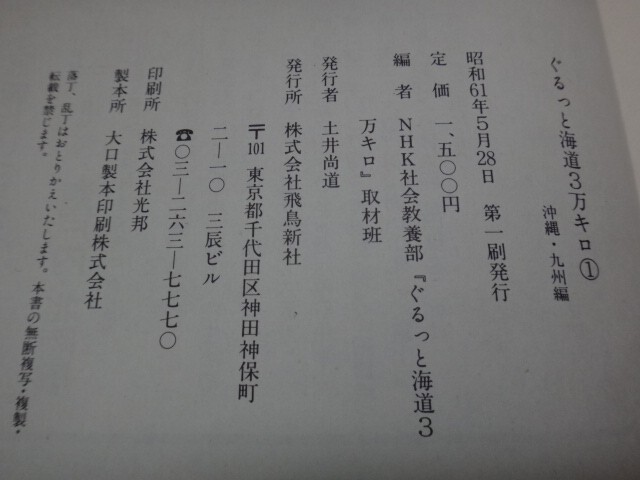 ぐるっと海道3万キロ①
沖縄・九州編
昭和61年5月28日　第一刷発行
定　価　一、五〇〇円
編　者　NHK社会教養部『ぐるっと海道3
万キロ』取材班
発行者　土井尚道
発行所　株式会社飛鳥新社
〒101　東京都千代田区神田神保町
二―一〇　三辰ビル
☎〇三―二六三―七七七〇
印刷所　株式会社光邦
製本所　大口製本印刷株式会社
落丁、乱丁はおとりかえいたします。本書の無断複写・複製・
転載を禁じます。